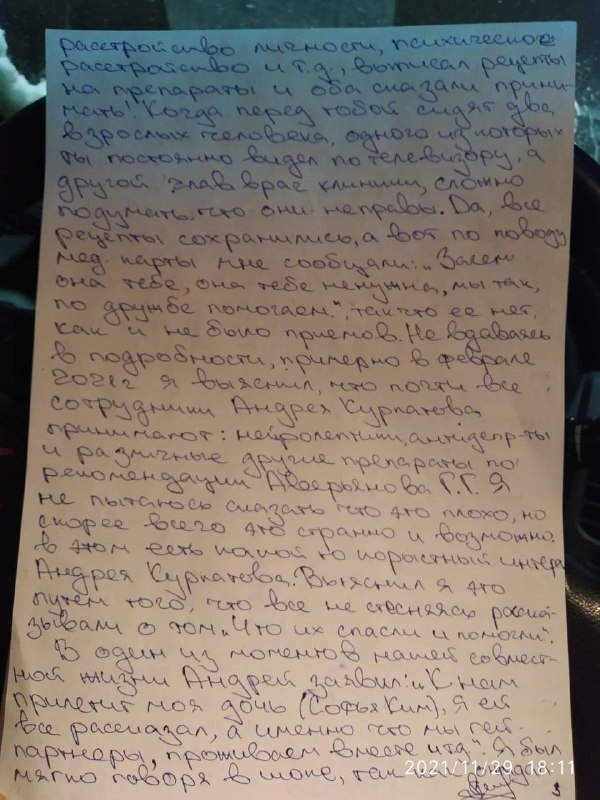 расстройство личности, психическое
расстройство и т.д., выписал рецепты
на препараты и оба сказали прини-
мать! Когда перед тобой сидят два
взрослых человека, одного из которых
ты постоянно видел по телевизору, а
другой глав врач клиники, сложно
подумать, что они неправы. Да, все
рецепты сохранились, а вот по поводу
мед. карты мне сообщали: „Зачем
она тебе, она тебе ненужна, мы так,
по дружбе помогаем.", так что ее нет,
как и не было приемов. Не вдаваясь
в подробности, примерно в феврале
2021г я выяснил, что почти все
сотрудники Андрея Курпатова
принимают: нейролептики, антидепр-ты
и различные другие препараты по
рекомендации Аверьянова Г.Г. Я
не пытаюсь сказать что это плохо, но
скорее всего это странно и возможно
в этом есть какой то корыстный интере
Андрея Курпатова. Выяснил я это
путем того, что все не стесняясь расска-
зывали о том „Что их спасли и помогли".
В один из моментов нашей совмест-
ной жизни Андрей заявил: „К нам
прилетит моя дочь (Софья Ким), я ей
все рассказал, а именно что мы гей-
партнеры, проживаем вместе итд." Я был
мягко говоря в шоке, так как
2021/11/29 18:11
3